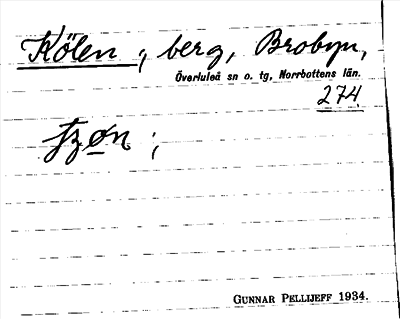 Kölen ; berg, Brobyn,
Överluleå sn o. tg, Norrbottens län.
274
;
GUNNAR PELLIJEFF 1934.